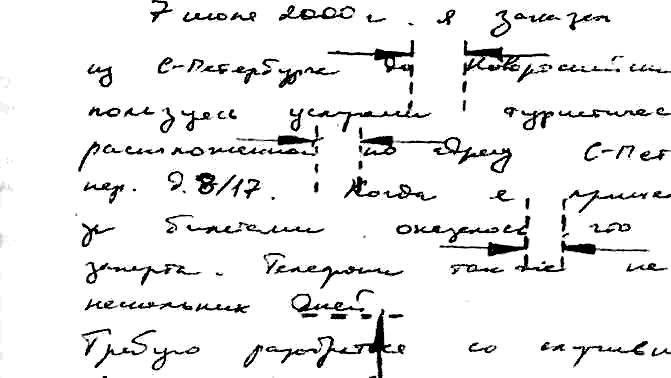 7 июне 2000 г. я заказал
из С-Петербурга до Новороссийска
пользуясь услугами туристичес
расположенной по адресу С-Пет
пер. д. 8/17. Когда я прише
за билетами оказалось что
заперта. Телефоны также не
нескольких дней
Требую разобраться со случивш